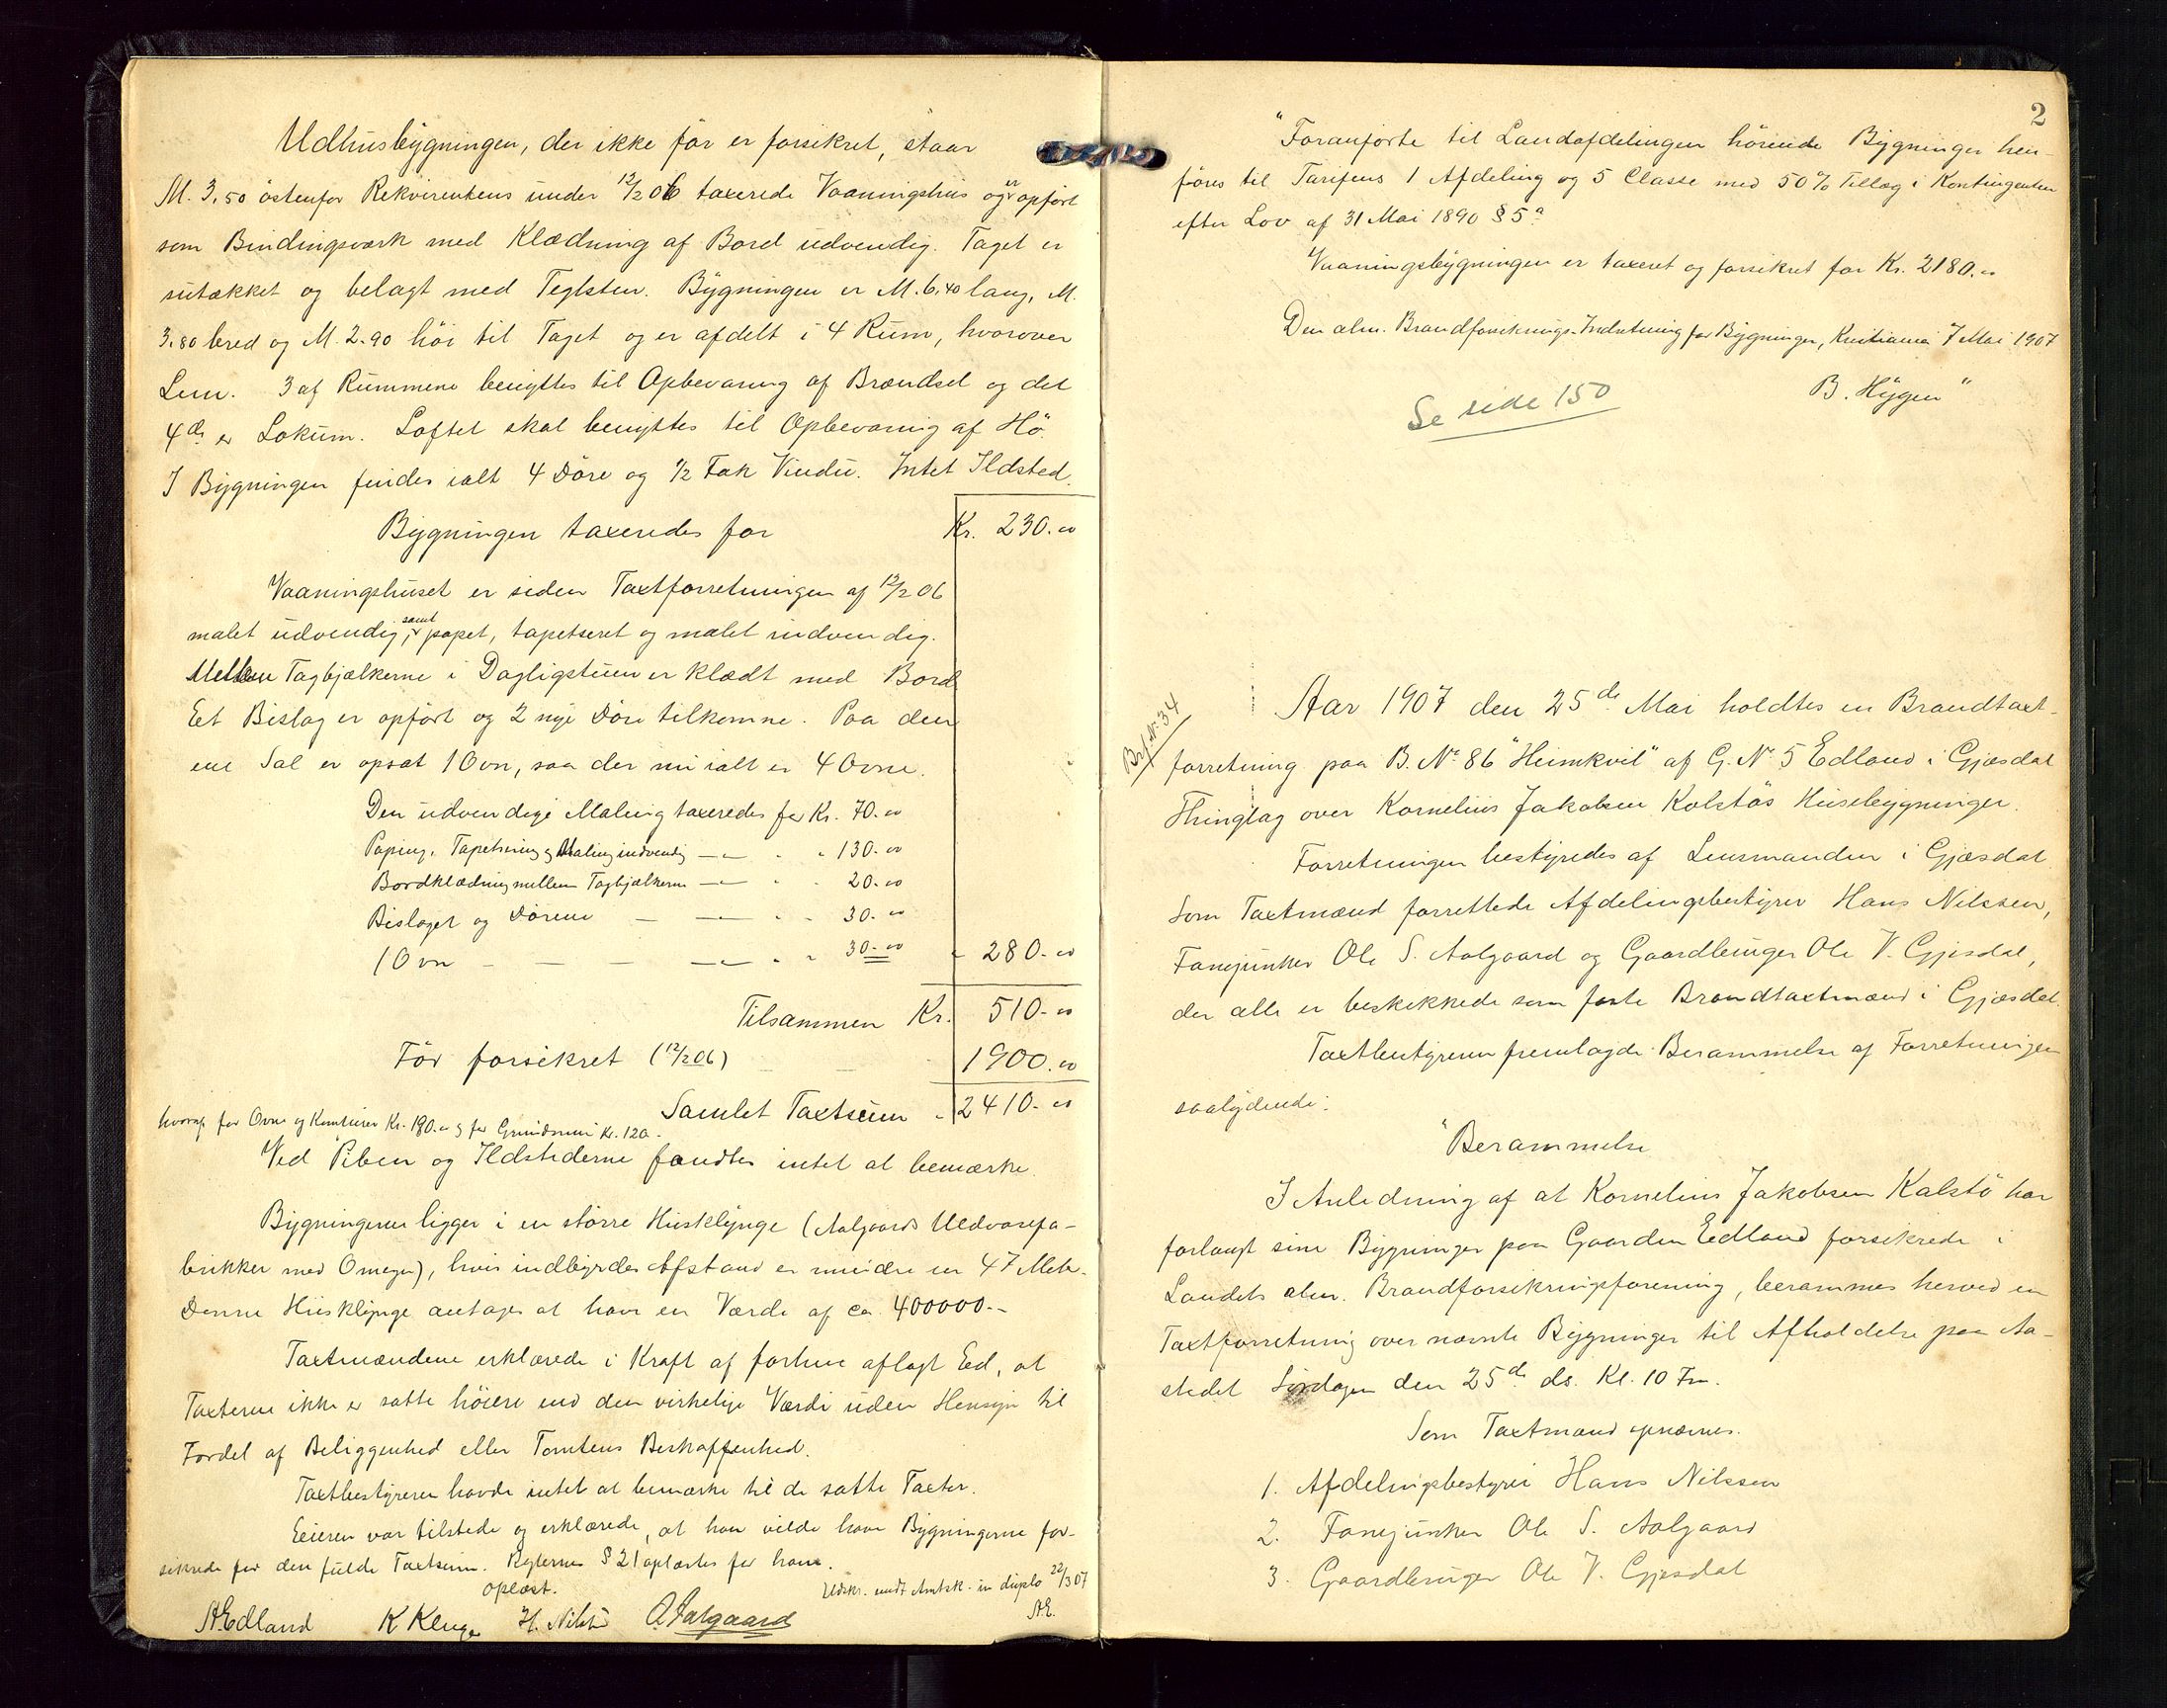 Udhusbygningen, der ikke før er forsikret, staar
M. 3,50 østenfor Rekvirentens under 12/2 06 taxerede Vaaningshus og er opført
som Bindingsværk med Klædning af Bord udvendig. Taget er
sutækket og belagt med Teglsten. Bygningen er M. 6,40 lang, M.
3,80 bred og M. 2.90 høi til Taget og er afdelt i 4 Rum, hvorover
Lem. 3 af Rummene benyttes til Opbevaring af Brændsel og det
4de er Lokum. Loftet skal benyttes til Opbevaring af Hø.
I Bygningen findes ialt 4 Døre og 1/2 Fak Vindu. Intet Ildsted.
Bygningen taxeredes for Kr. 230.00
Vaaningshuset er siden Taxtforretningen af 12/2 06
malet udvendig, samt papet, tapetseret og malet indvendig.
Mellem Tagbjælkerne i Dagligstuen er klædt med Bord
Et Bislag er opført og 2 nye Døre tilkomne. Paa den
ene Sal er opsat 1 Ovn, saa der nu ialt er 4 Ovne.
Den udvendige Maling taxeredes for Kr. 70.00
Paping, Tapetsering og Maling indvendig — " " 130.00
Bordklædning mellem Tagbjælkerne — " " 20.00
Bislaget og Dørene — — " " 30.00
1 Ovn — — — — " " 30.00 " 280.00
Tilsammen Kr. 510.00
Før forsikret (12/2 06) — — 1900.00
Samlet Taxtsum " 2410.00
hvoraf for Ovne og Komfurer Kr. 190.00 og for Grundmur Kr. 120.-
Ved Piben og Ildstederne fandtes intet at bemærke.
Bygningerne ligger i en større Husklynge (Aalgaards Uldvarefa-
brikker med Omegn), hvis indbyrdes Afstand er mindre en 47 Meter.
Denne Husklynge antages at have en Værdi af ca. 400000.-
Taxtmændene erklærede i Kraft af forhen aflagt Eed, at
Taxterne ikke er satte høiere end den virkelige Værdi uden Hensyn til
Fordel af Beliggenhed eller Tomtens Beskaffenhed.
Taxtbestyreren havde intet at bemærke til de satte Taxter.
Eieren var tilstede og erklærede, at han vilde have Bygningerne for-
sikrede for den fulde Taxtsum. Reglernes § 21 oplæstes for ham.
Oplæst. Udskr. sendt Amtsk. in duplo 22/3 07
A.E.
A Edland K Kluge H. Nilsen O. Aalgaard
2
"Foranførte til Landafdelingen hørende Bygninger hen-
føres til Tarifens 1 Afdeling og 5 Classe med 50% Tillæg i Kontingenten
efter Lov af 31 Mai 1890 § 5 a
Vaaningsbygningen er taxeret og forsikret for Kr. 2180.00
Den alm. Brandforsikrings-Indretning for Bygninger, Kristiania 7 Mai 1907
B. Hygen"
Se side 150
Brf. N. 34
Aar 1907 den 25de Mai holdtes en Brandtaxt-
forretning paa B. No 86 "Heimkvil" af G. No 5 Edland i Gjæsdal
Thinglag over Kornelius Jakobsen Kalstøs Husebygninger.
Forretningen bestyredes af Lensmanden i Gjæsdal.
Som Taxtmænd forrettede Afdelingsbestyrer Hans Nilssen,
Fanejunker Ole S. Aalgaard og Gaardbruger Ole V. Gjesdal,
der alle er beskikkede som faste Brandtaxtmænd i Gjæsdal.
Taxtbestyreren fremlagde Berammelse af Forretningen
saalydende:
"Berammelse
I Anledning af at Kornelius Jakobsen Kalstø har
forlangt sine Bygninger paa Gaarden Edland forsikrede i
Landets alm. Brandforsikringsforening, berammes herved en
Taxtforretning over nævnte Bygninger til Afholdelse paa Aa-
stedet Lørdagen den 25de ds. Kl. 10 Fm.
Som Taxtmænd opnævnes.
1. Afdelingsbestyrer Hans Nilssen
2. Fanejunker Ole S. Aalgaard
3. Gaardbruger Ole V. Gjesdal